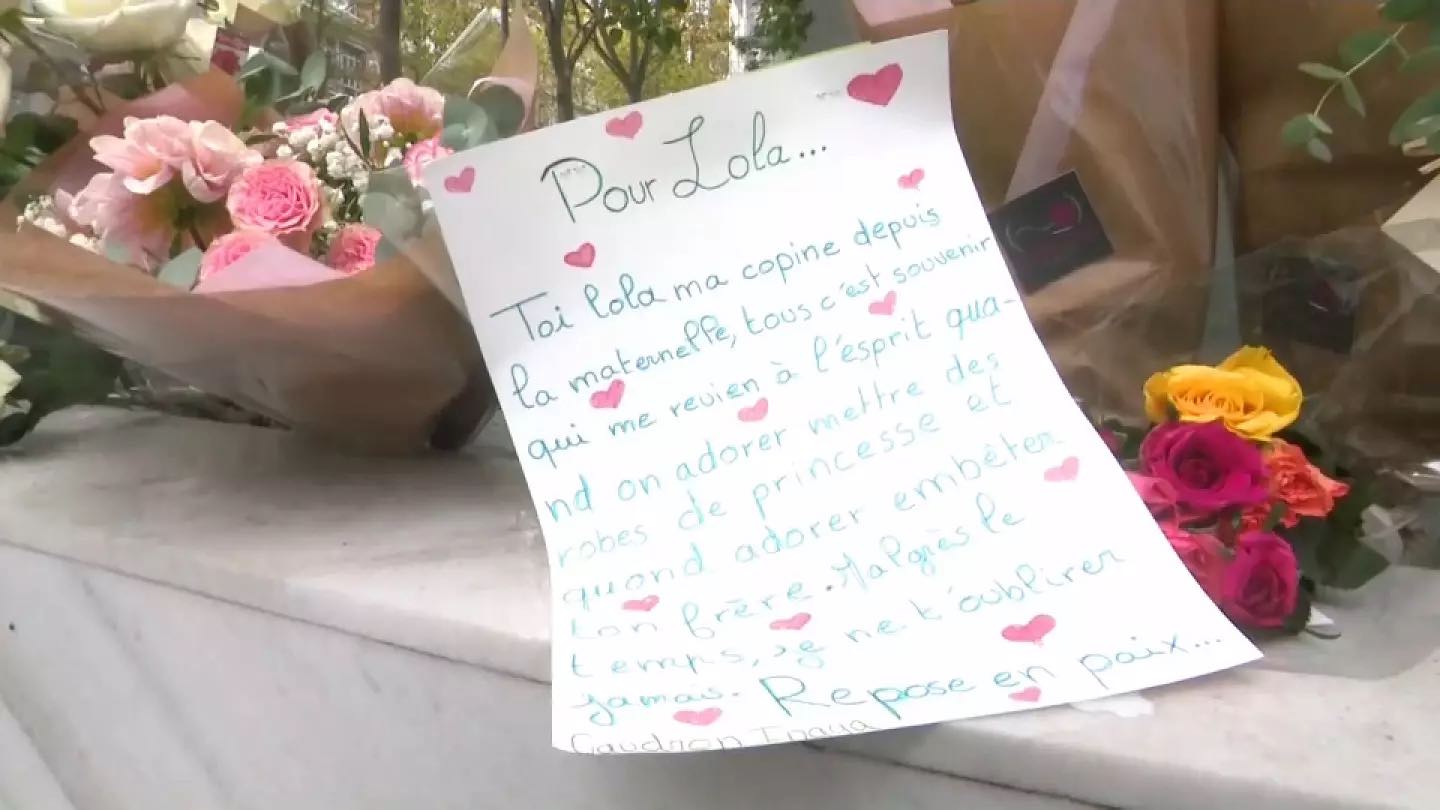 Pour Lola...
Toi lola ma copine depuis
la maternelle, tous c'est souvenir
qui me revien à l'esprit qua-
nd on adorer mettre des
robes de princesse et
quand adorer embêter
ton frère. Malgrès le
temps, je ne t'oublirer
jamais. Repose en paix...